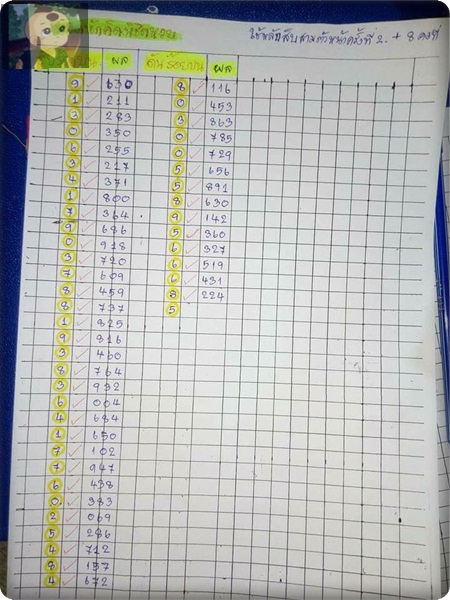 ใช้หลักสิบสามตัวหน้าครั้งที่ 2. + 8 คงที่
ผล ดับ ร้อยบน ผล
9 ✓ 630 8 ✓ 116
1 ✓ 211 0 ✓ 453
3 ✓ 283 3 ✓ 863
0 ✓ 350 0 ✓ 785
6 ✓ 255 0 ✓ 729
3 ✓ 217 5 ✓ 656
4 ✓ 371 5 ✓ 891
1 ✓ 800 8 ✓ 630
7 ✓ 364 9 ✓ 142
9 ✓ 686 5 ✓ 360
0 ✓ 978 6 ✓ 327
3 ✓ 720 6 ✓ 519
7 ✓ 609 6 ✓ 431
8 ✓ 459 8 ✓ 224
8 ✓ 737 5
1 ✓ 825
9 ✓ 816
3 ✓ 460
8 ✓ 764
3 ✓ 932
6 ✓ 004
4 ✓ 684
1 ✓ 650
7 ✓ 102
7 ✓ 947
6 ✓ 438
0 ✓ 383
2 ✓ 069
5 ✓ 286
4 ✓ 712
8 ✓ 157
4 ✓ 672